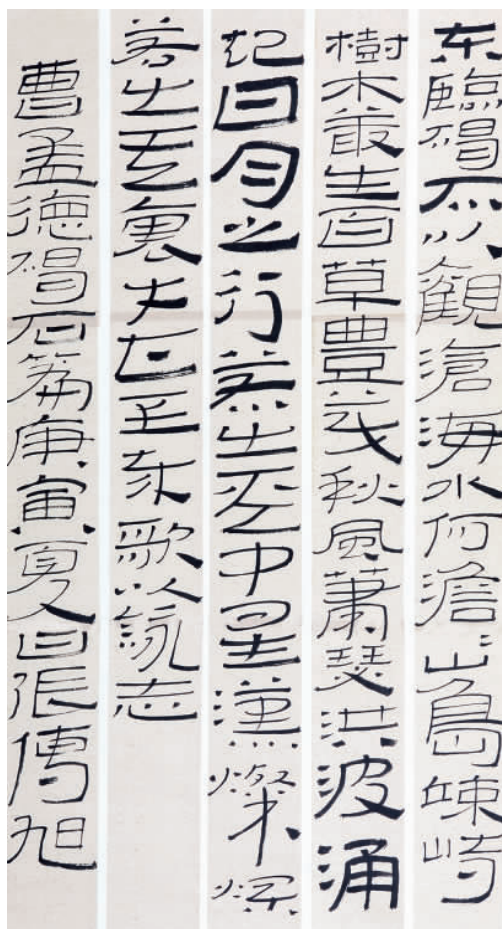 东臨碣石以觀滄海水何澹〻山島竦峙
樹木叢生百草豊茂秋風蕭瑟洪波涌
起日月之行若出亓中星漢燦爛
若出亓裏幸甚至哉歌以詠志
曹孟德碣石篇庚寅夏日張傳旭